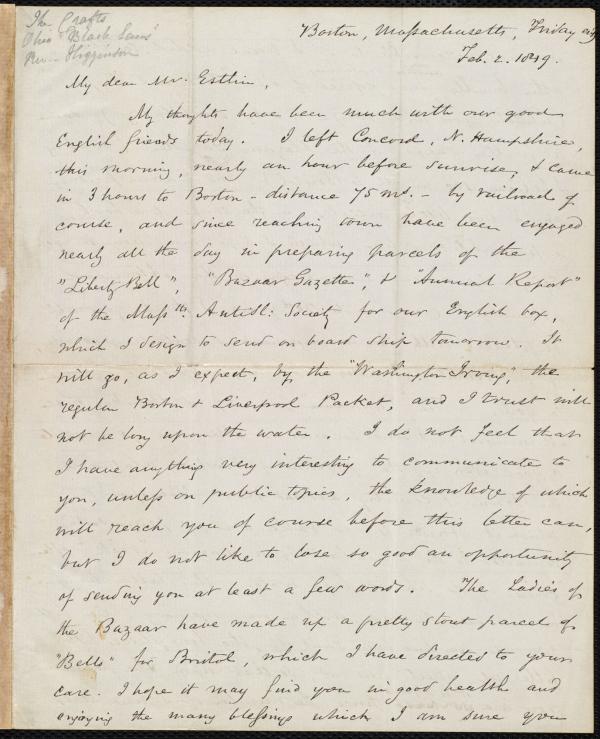 The Crafts
Ohio "Black Laws"
Rev. Higginson
Boston, Massachusetts, Friday evg
Feb. 2. 1849.
My dear Mr. Estlin,
My thoughts have been much with our good
English friends today. I left Concord, N. Hampshire,
this morning, nearly an hour before sunrise, & came
in 3 hours to Boston - distance 75 ms. - by railroad of
course, and since reaching town have been engaged
nearly all the day in preparing parcels of the
"Liberty Bell", "Bazaar Gazettes", & "Annual Report"
of the Masstts. Antisl: Society for our English box,
which I design to send on board ship tomorrow. It
will go, as I expect, by the "Washington Irving", the
regular Boston & Liverpool Packet, and I trust will
not be long upon the water. I do not feel that
I have anything very interesting to communicate to
you, unless on public topics, the knowledge of which
will reach you of course before this letter can,
but I do not like to lose so good an opportunity
of sending you at least a few words. The Ladies of
the Bazaar have made up a pretty stout parcel of
"Bells" for Bristol, which I have directed to your
care. I hope it may find you in good health and
enjoying the many blessings which I am sure you